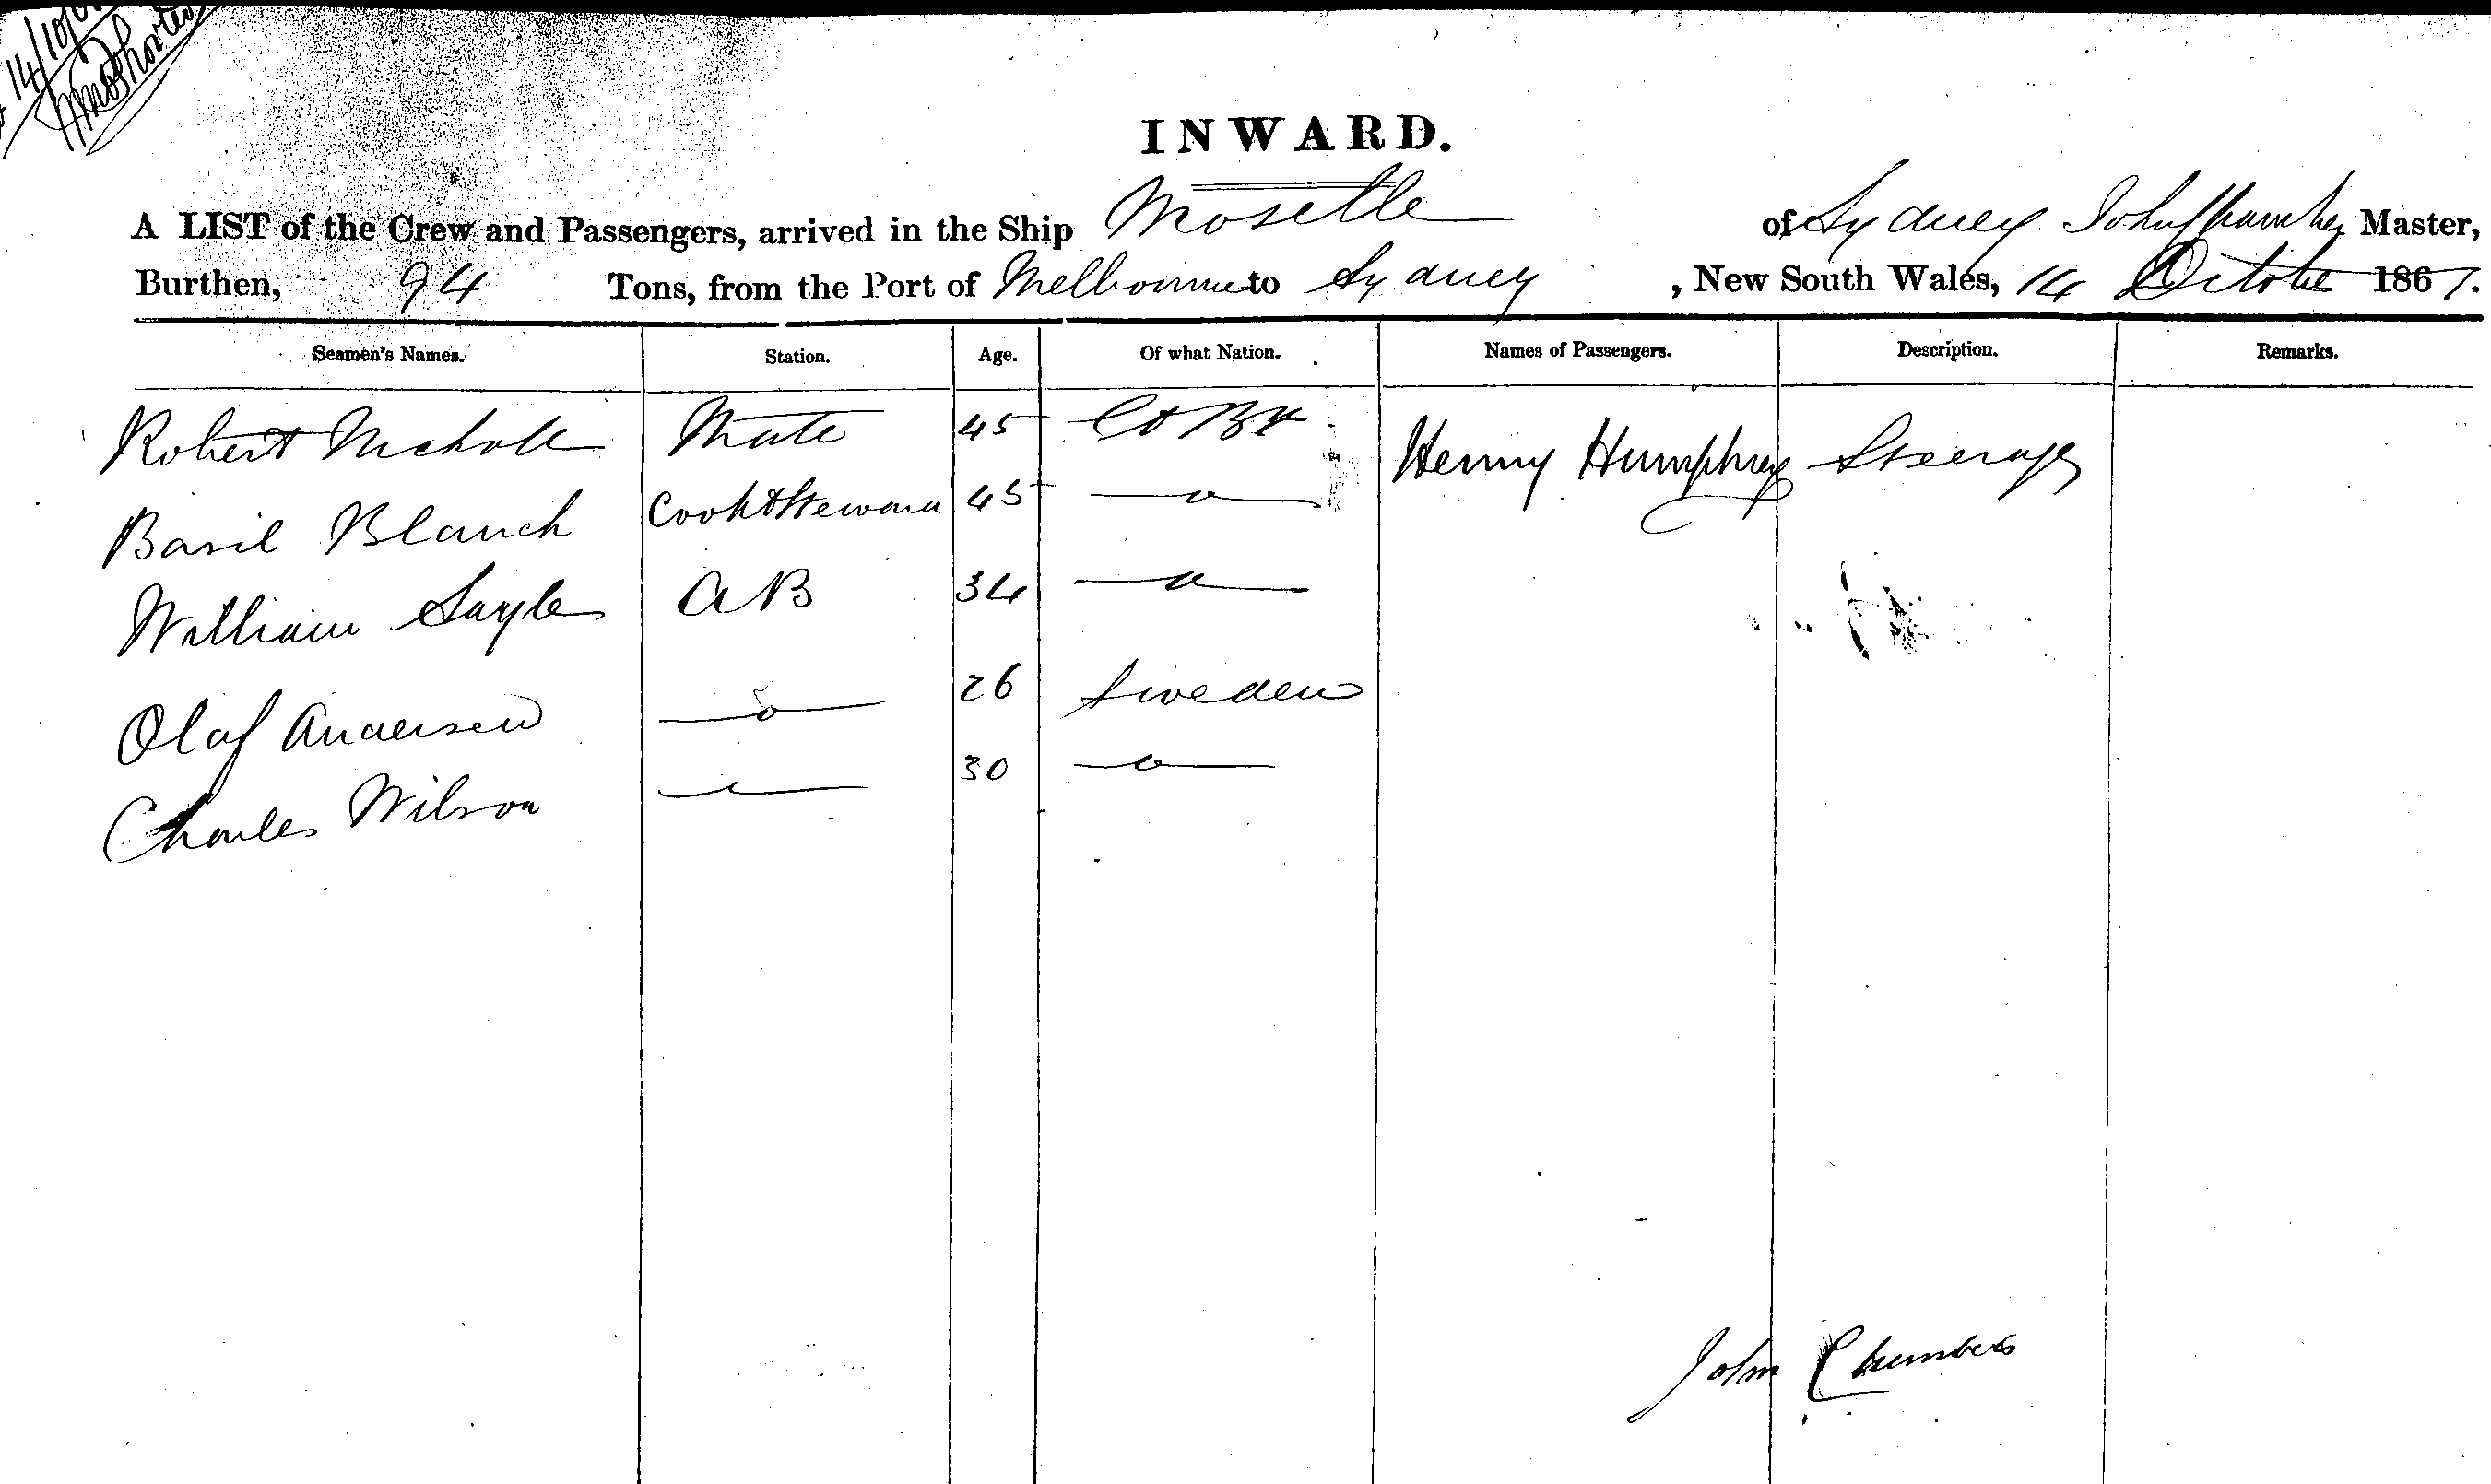 14/10/
INWARD.
A LIST of the Crew and Passengers, arrived in the Ship Moselle of Sydney John Chambers Master,
Burthen, 94 Tons, from the Port of Melbourne to Sydney, New South Wales, 14 October 1867.
Seamen's Names. Station. Age. Of what Nation. Names of Passengers. Description. Remarks.
Robert Nicholl Mate 45 Gt Br Henny Humphrey Steerage
Basil Blanch Cook & Steward 45 — " —
William Sayle AB 34 — " —
Olaf Andersen — " — 26 Sweden
Charles Wilson — " — 30 — " —
John Chambers